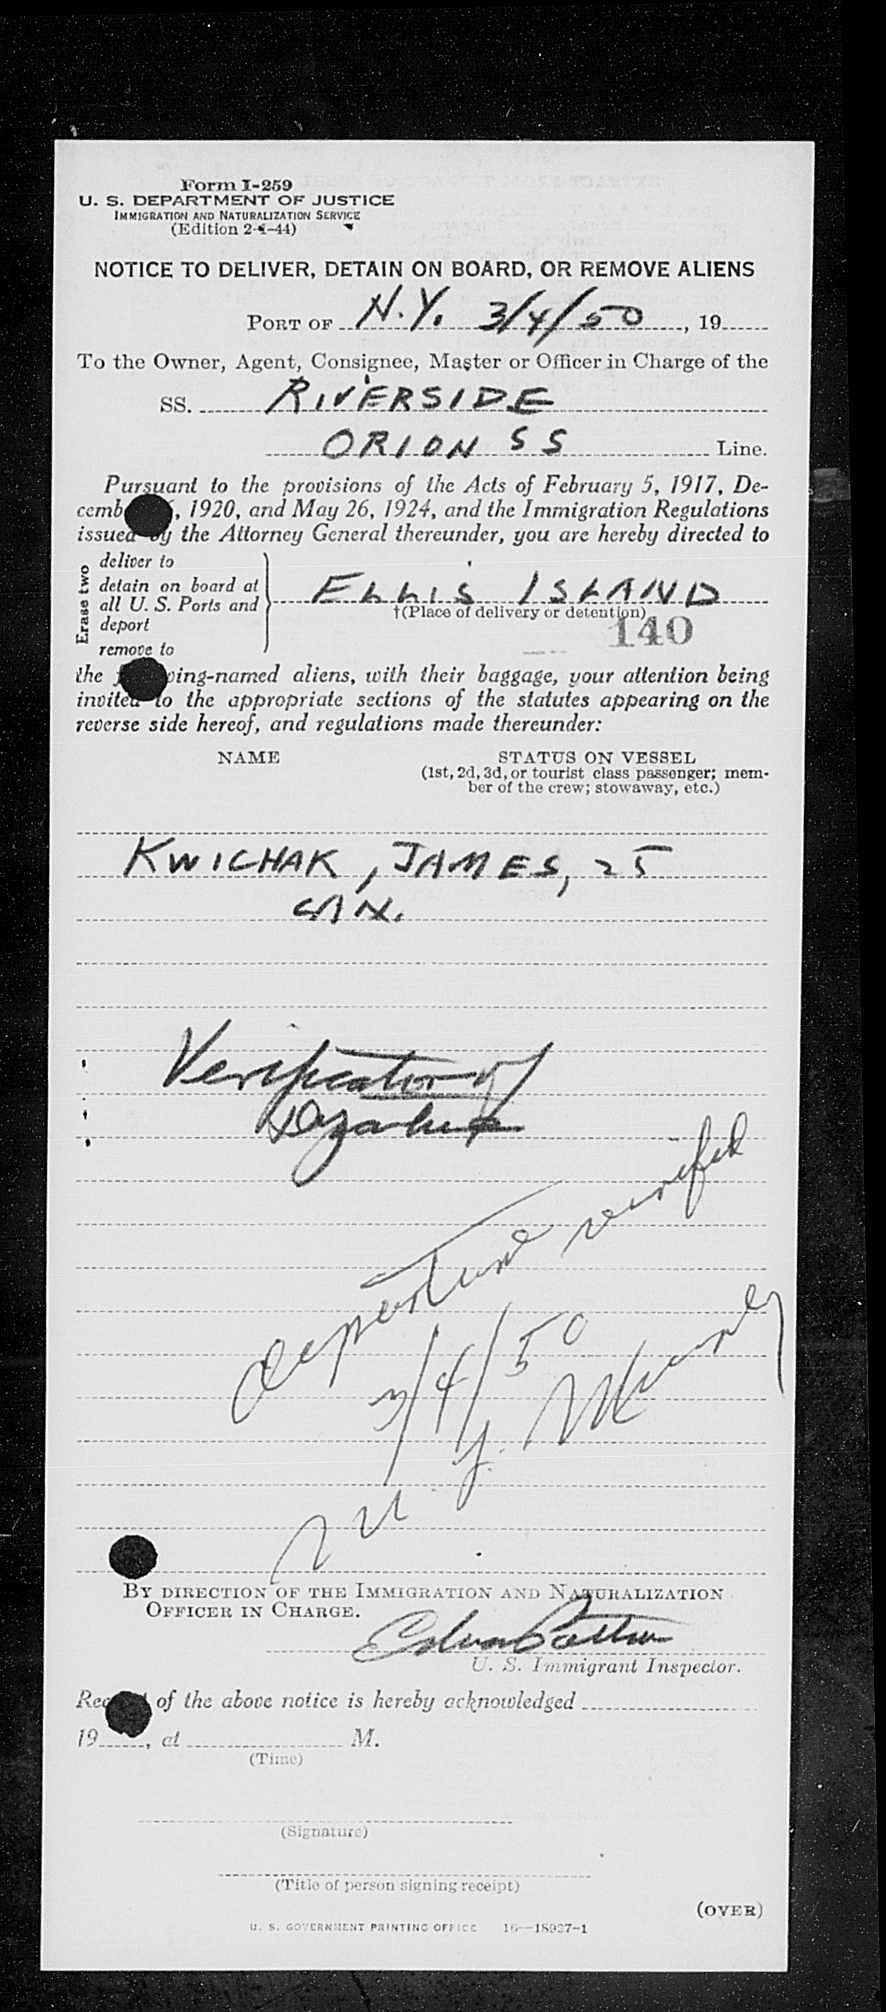 Form I-259
U. S. DEPARTMENT OF JUSTICE
IMMIGRATION AND NATURALIZATION SERVICE
(Edition 2-1-44)
NOTICE TO DELIVER, DETAIN ON BOARD, OR REMOVE ALIENS
PORT OF N.Y. 3/4/50, 19
To the Owner, Agent, Consignee, Master or Officer in Charge of the
SS. RIVERSIDE
ORION SS Line.
Pursuant to the provisions of the Acts of February 5, 1917, De-
cemb , 1920, and May 26, 1924, and the Immigration Regulations
issued by the Attorney General thereunder, you are hereby directed to
Erase two
deliver to
detain on board at
all U. S. Ports and
deport
remove to
ELLIS ISLAND
†(Place of delivery or detention)
140
the ing-named aliens, with their baggage, your attention being
invited to the appropriate sections of the statutes appearing on the
reverse side hereof, and regulations made thereunder:
NAME
STATUS ON VESSEL
(1st, 2d, 3d, or tourist class passenger; mem-
ber of the crew; stowaway, etc.)
KWICHAK, JAMES, 25
CAN.
Verification of
departure verified
3/4/50
BY DIRECTION OF THE IMMIGRATION AND NATURALIZATION
OFFICER IN CHARGE.
U. S. Immigrant Inspector.
Rec of the above notice is hereby acknowledged
19 , at M.
(Time)
(Signature)
(Title of person signing receipt)
(OVER)
U. S. GOVERNMENT PRINTING OFFICE 16—18927-1